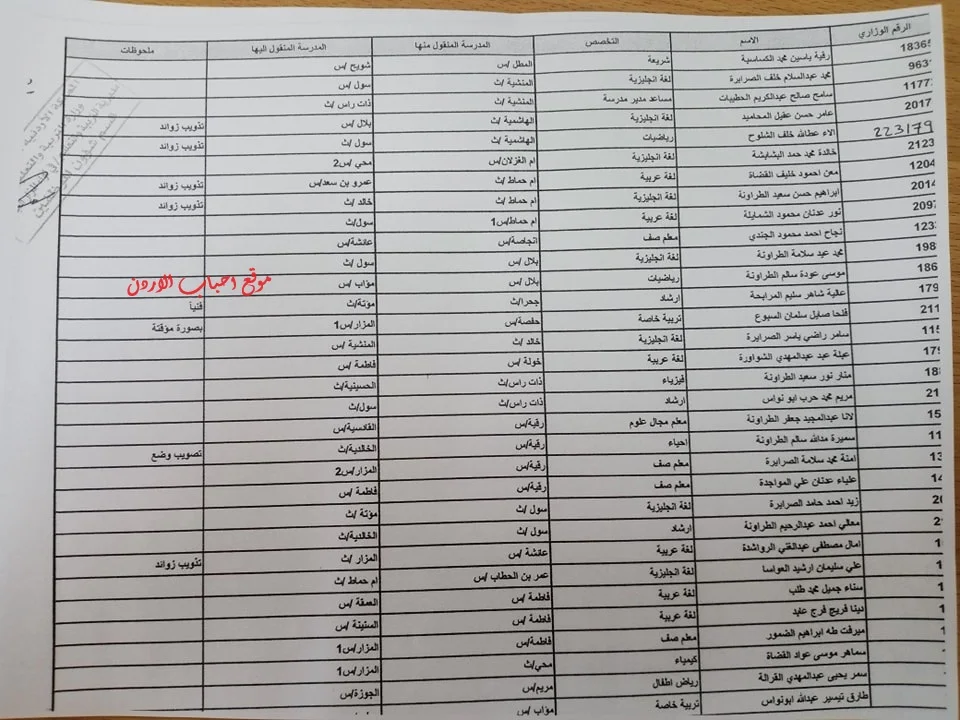 الرقم الوزاري الاسم التخصص المدرسة المنقول منها المدرسة المنقول اليها ملحوظات
18365 رقية ياسين محمد الكساسبة شريعة المطل /س شويح /س
963 محمد عبدالسلام خلف الصرايرة لغة انجليزية المنشية /ث سول /س
1177 سامح صالح عبدالكريم الحطيبات مساعد مدير مدرسة المنشية /ث ذات راس /ث
2017 عامر حسن عقيل المحاميد لغة انجليزية الهاشمية /ث بلال /س تذويب زوائد
223179 الاء عطالله خلف الشلوح رياضيات الهاشمية /ث سول /ث تذويب زوائد
2123 خالدة محمد حمد البشابشة لغة انجليزية ام الغزلان/س محي /س2
1204 معن احمود خليف القضاة لغة عربية ام حماط /ث عمرو بن سعد/س تذويب زوائد
2014 ابراهيم حسن سعيد الطراونة لغة انجليزية ام حماط /ث خالد /ث تذويب زوائد
2097 نور عدنان محمود الشمايلة لغة عربية ام حماط/س1 سول/ث
123 نجاح احمد محمود الجندي معلم صف انجاصة/س عائشة/س
198 محمد عيد سلامة الطراونة لغة انجليزية بلال /س سول /ث
186 موسى عودة سالم الطراونة رياضيات بلال /س مؤاب /س
موقع احباب الاردن
179 عالية شاهر سليم المرابحة ارشاد جحرا/ث مؤتة/ث فنياً
211 فلحا صايل سلمان السبوع تربية خاصة حفصة/س المزار/س1 بصورة مؤقتة
115 سامر راضي ياسر الصرايرة لغة انجليزية خالد /ث المنشية /س
179 عبلة عبد عبدالمهدي الشواورة لغة عربية خولة /س فاطمة /س
18 منار نور سعيد الطراونة فيزياء ذات راس/ث الحسينية/ث
21 مريم محمد حرب ابو نواس ارشاد ذات راس/ث سول/ث
15 لانا عبدالمجيد جعفر الطراونة معلم مجال علوم رقية/س القادسية/س
11 سميرة مدالله سالم الطراونة احياء رقية/س الخالدية/ث تصويب وضع
13 امنة محمد سلامة الصرايرة معلم صف رقية/س المزار/س2
14 علياء عدنان علي المواجدة معلم صف رقية/س فاطمة /س
20 زيد احمد حامد الصرايرة لغة انجليزية سول /ث مؤتة /ث
2 معالي احمد عبدالرحيم الطراونة ارشاد سول /ث الخالدية/ث
1 امال مصطفى عبدالغني الرواشدة لغة عربية عائشة /س المزار /ث تذويب زوائد
1 علي سليمان ارشيد العواسا لغة انجليزية عمر بن الخطاب /س ام حماط /ث
1 سناء جميل محمد طلب لغة عربية فاطمة /س العمقة /س
دينا فريج فرج عابد لغة عربية فاطمة /س الستينة /س
ميرفت طه ابراهيم الضمور معلم صف فاطمة/س المزار/س1
سماهر موسى عواد القضاة كيمياء محي/ث المزار/س1
سمر يحيى عبدالمهدي القرالة رياض اطفال مريم/س الجوزة/س
طارق تيسير عبدالله ابونواس تربية خاصة مؤاب /س